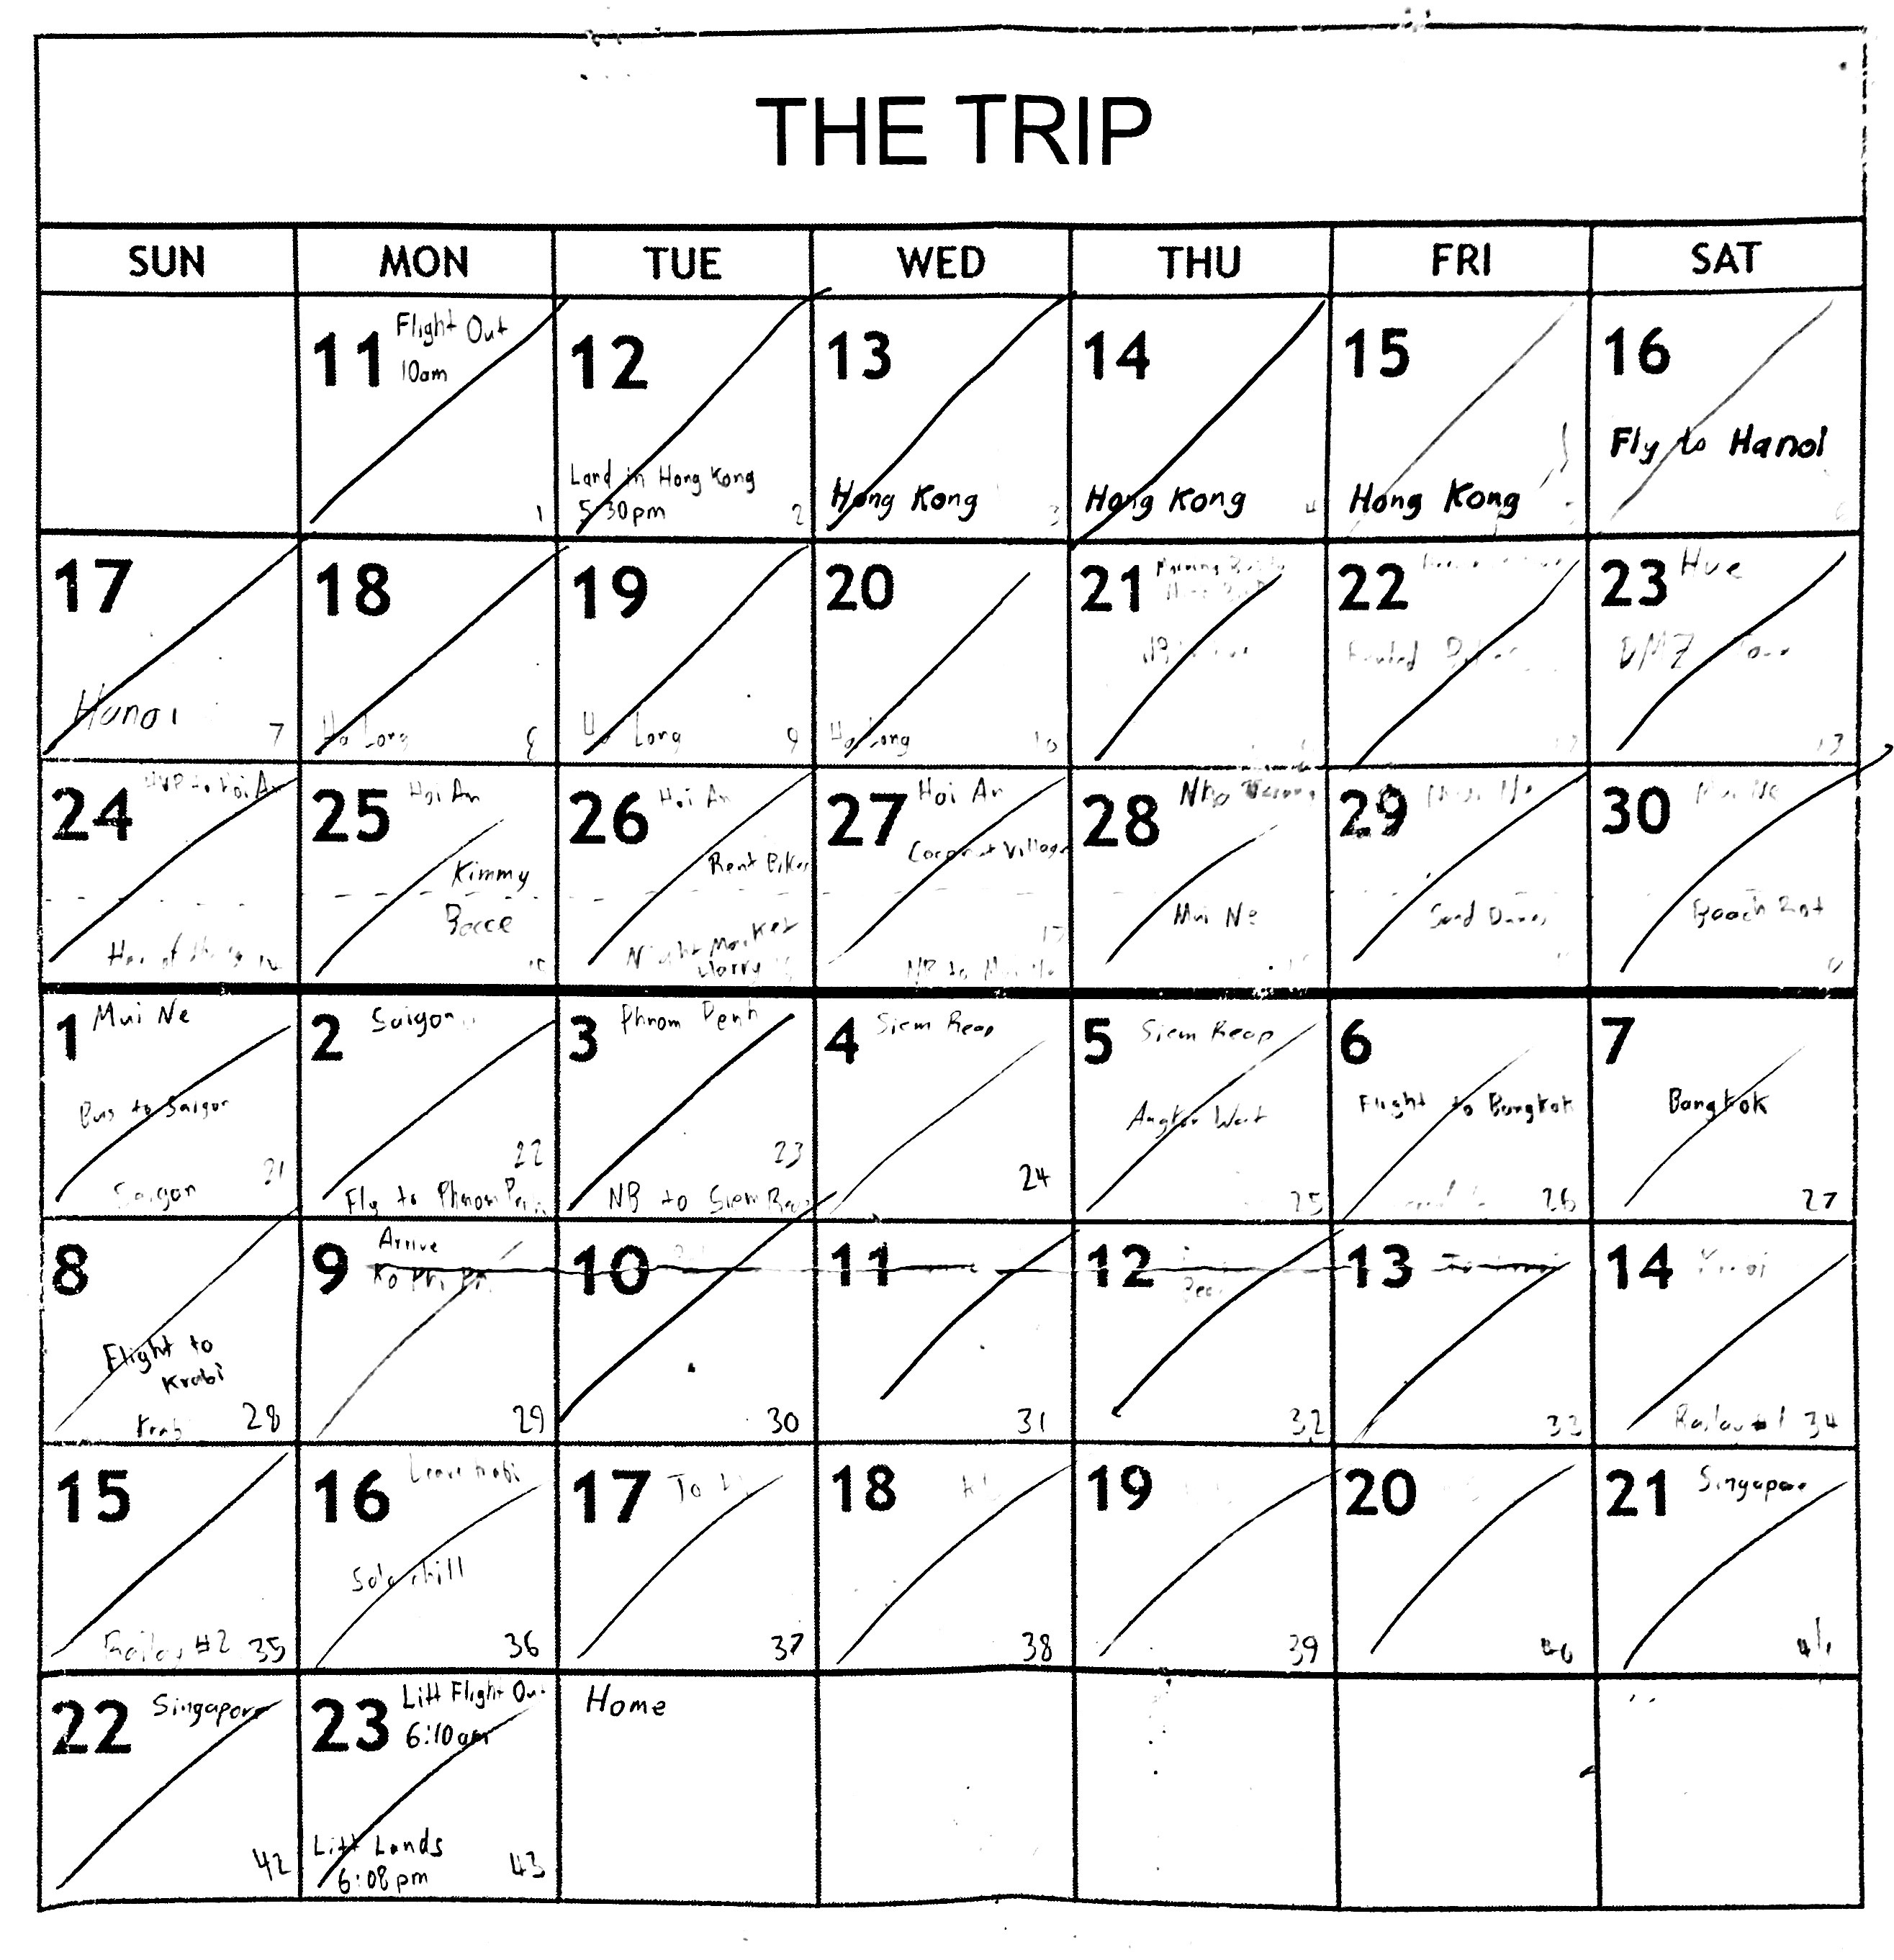 THE TRIP
SUN MON TUE WED THU FRI SAT
11 Flight Out
10am
1
12
Land in Hong Kong
5:30pm
2
13
Hong Kong
3
14
Hong Kong
4
15
Hong Kong
16
Fly to Hanoi
17
Hanoi
7
18
Ha Long
8
19
Ha Long
9
20
Ha Long
10
21
22
23 Hue
DMZ Tour
13
24
25 Hoi An
Kimmy
Bocce
26 Hoi An
Rent Bikes
Night Market
27 Hoi An
Coconut Village
28
Mui Ne
29 Mui Ne
Sand Dunes
30 Mui Ne
Beach
1 Mui Ne
Bus to Saigon
Saigon
21
2 Saigon
22
Fly to Phnom Penh
3 Phnom Penh
23
NB to Siem Reap
4 Siem Reap
24
5 Siem Reap
Angkor Wat
25
6
Flight to Bangkok
26
7
Bangkok
27
8
Flight to
Krabi
Krabi
28
9 Arrive
Ko Phi Phi
29
10
30
11
31
12
32
13
33
14
Railay #1 34
15
Railay #2 35
16 Leave Krabi
Solo chill
36
17
37
18
38
19
39
20
40
21 Singapore
41
22 Singapore
42
23 Litt Flight Out
6:10am
Litt Lands
6:08pm
43
Home